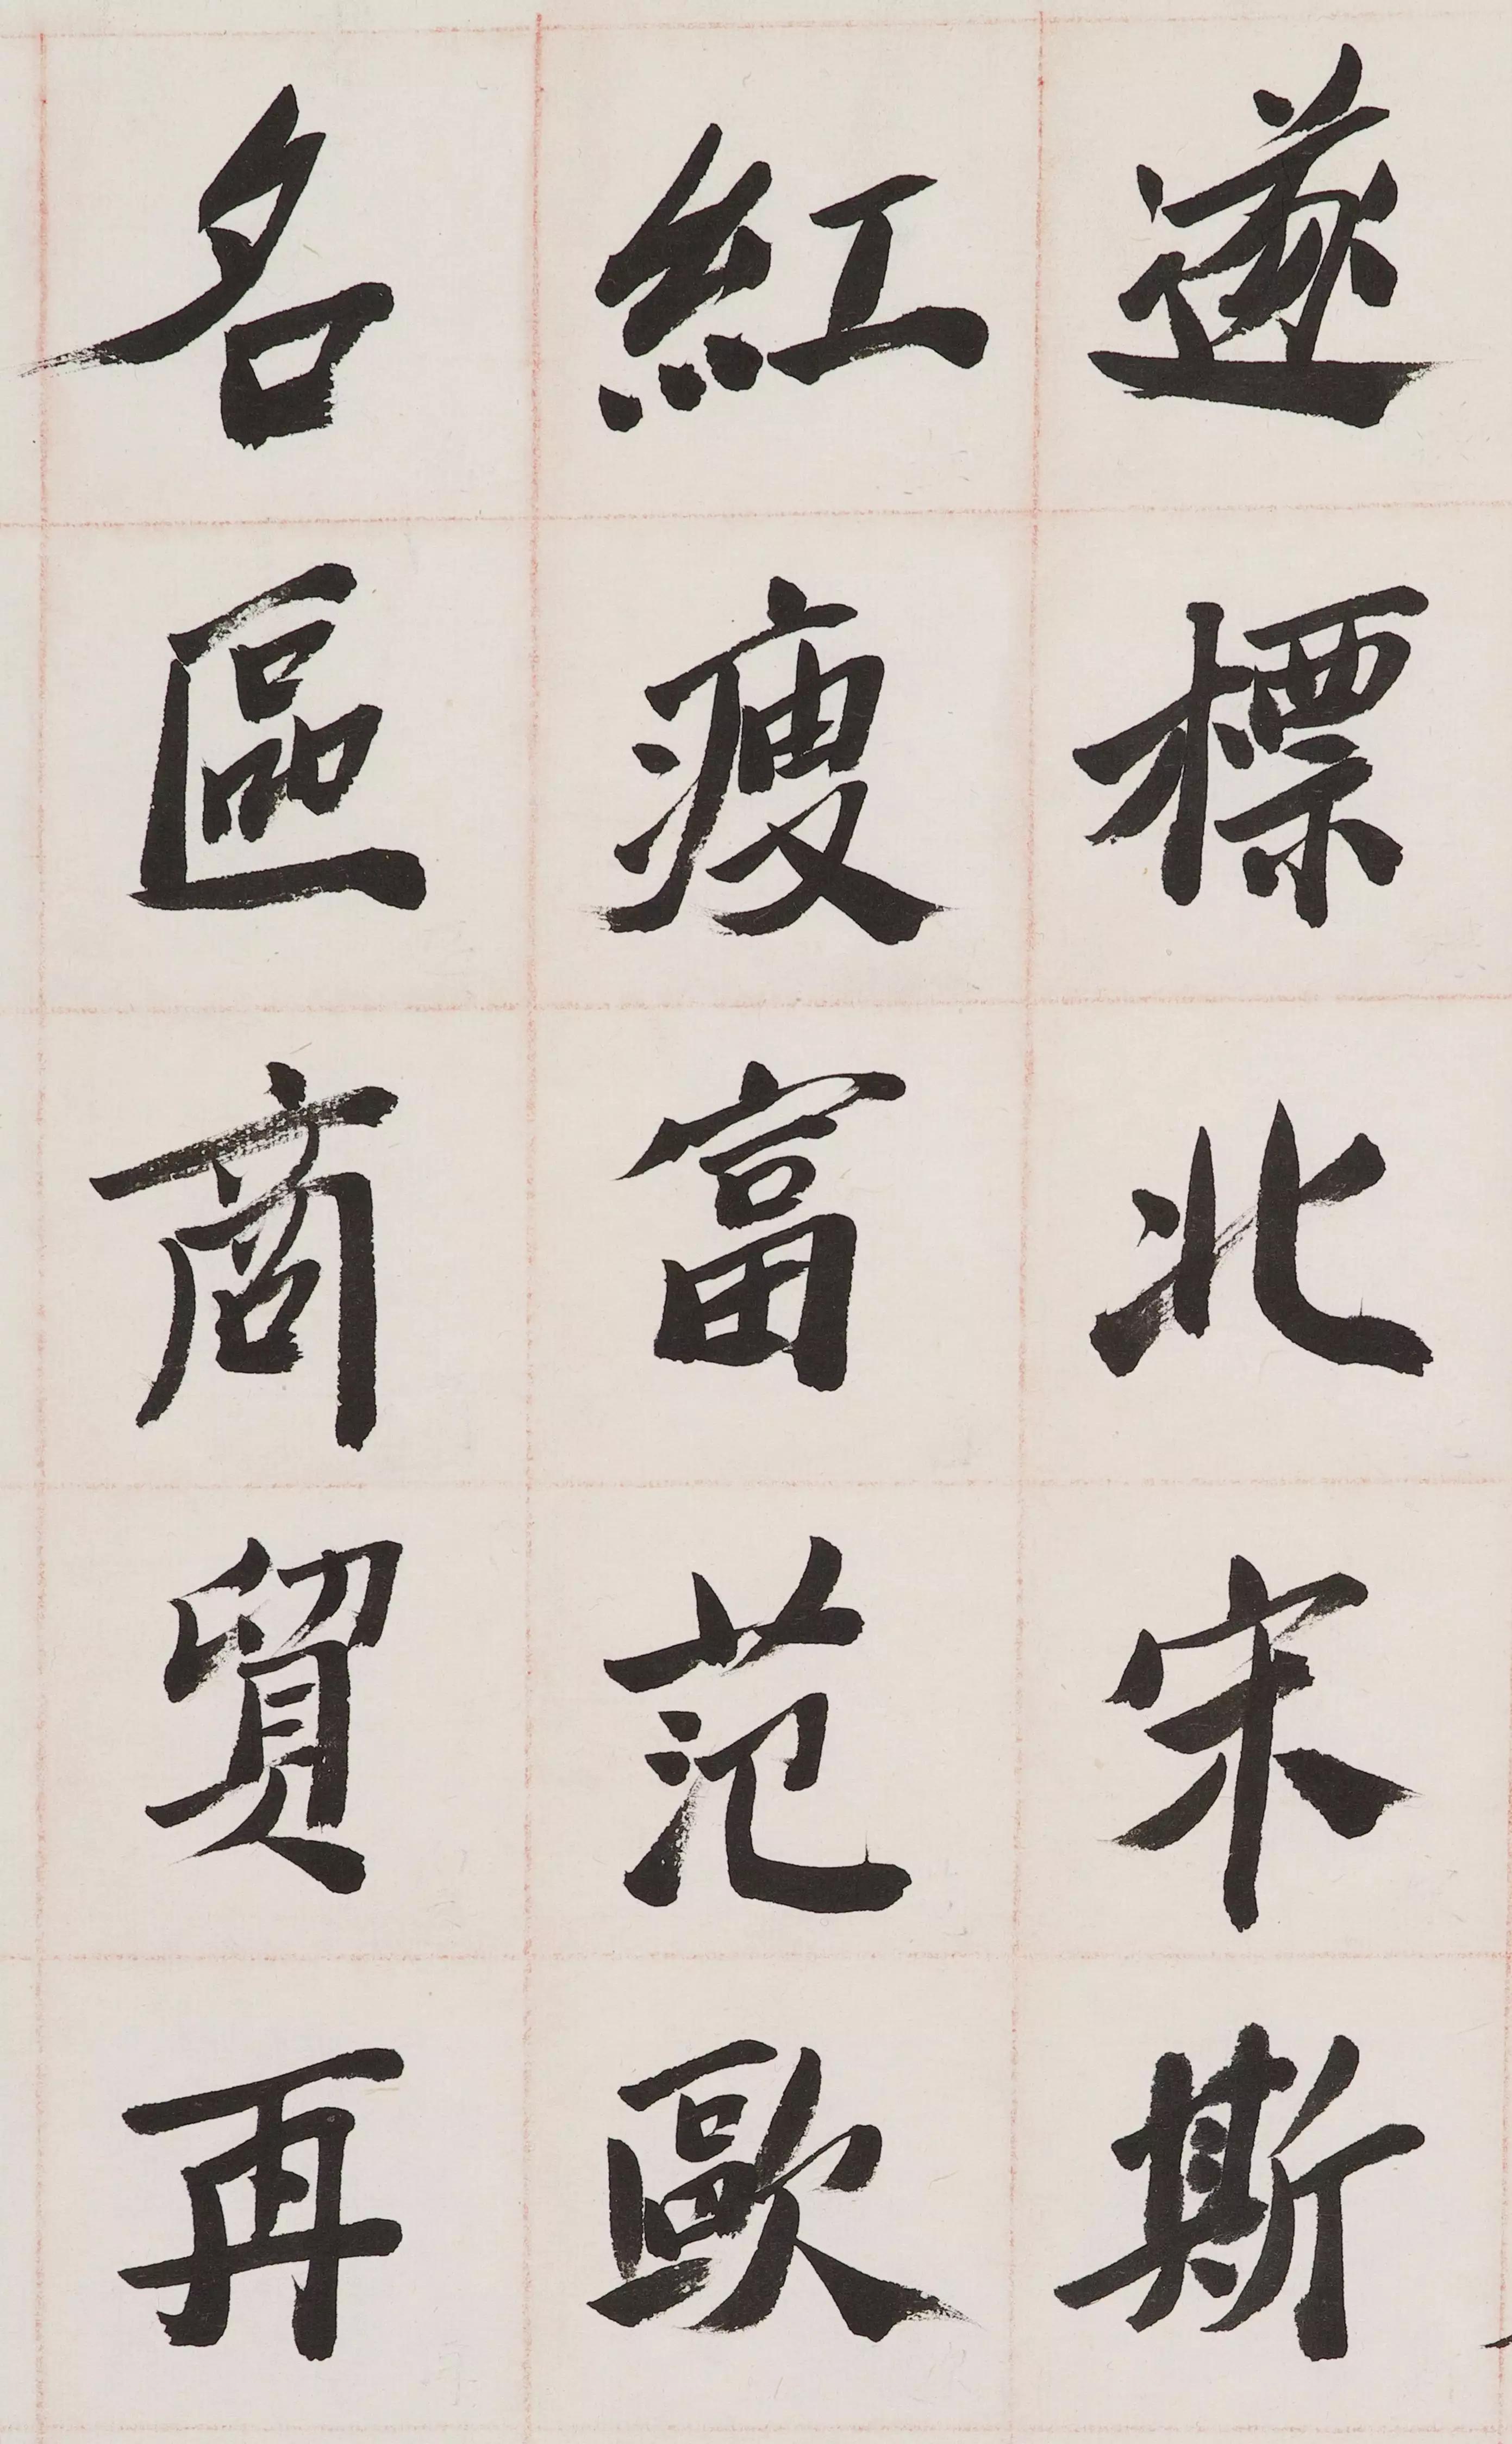 遂標北宋斯
紅瘦富范歐
名區商貿再